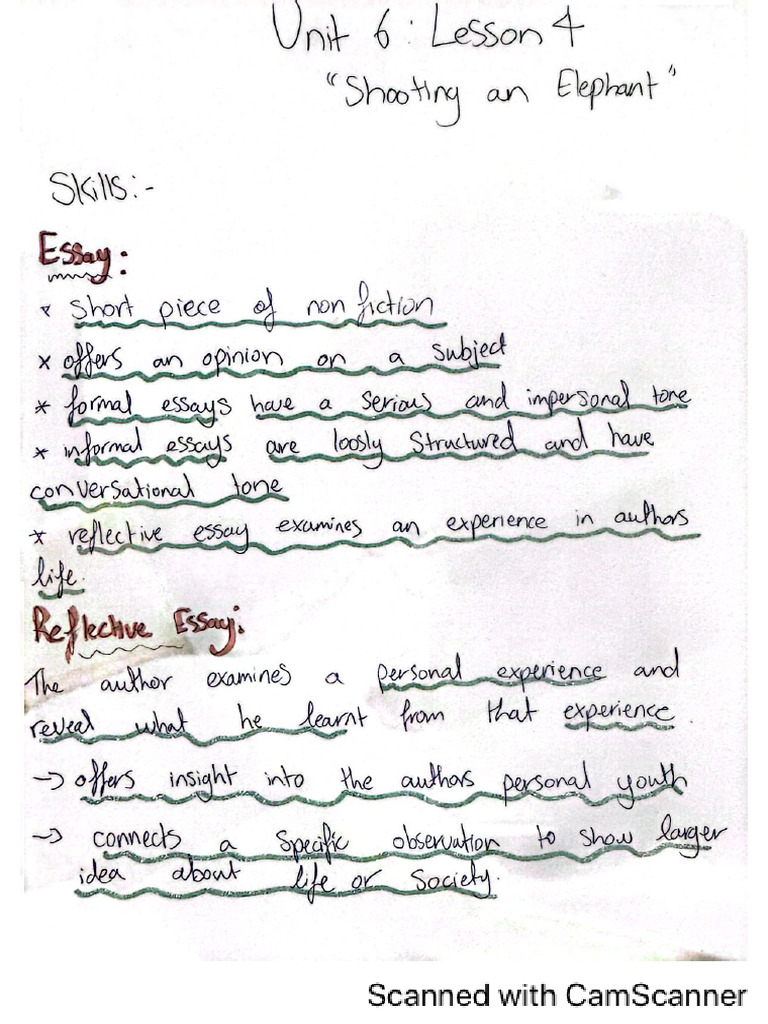 Unit 6 : Lesson 4
"Shooting an Elephant"
Skills:-
Essay:
* Short piece of non fiction
* offers an opinion on a subject
* formal essays have a serious and impersonal tone
* informal essays are loosly structured and have
conversational tone
* reflective essay examines an experience in authors
life.
Reflective Essay:
The author examines a personal experience and
reveal what he learnt from that experience.
→ offers insight into the authors personal youth
→ connects a specific observation to show larger
idea about life or society.
Scanned with CamScanner